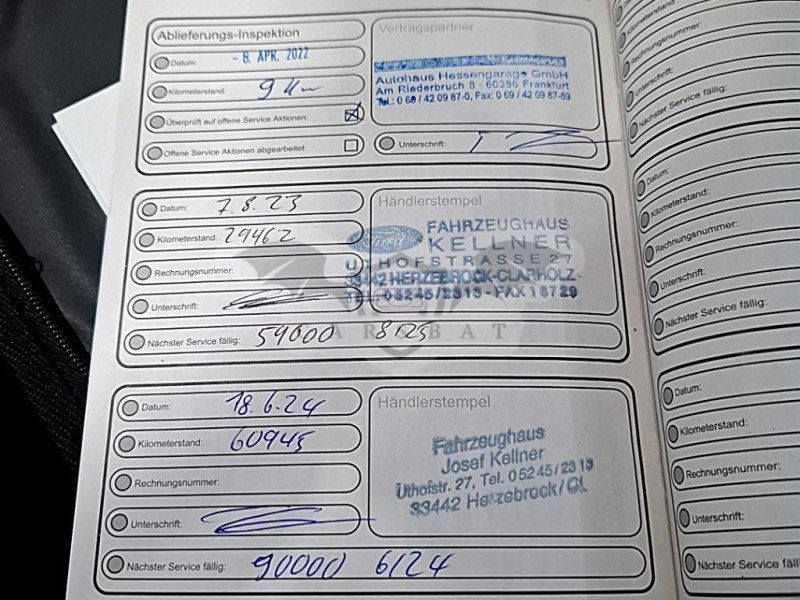 Ablieferungs-Inspektion
Datum: - 8. APR. 2022
Kilometerstand: 9 km
Überprüft auf offene Service Aktionen:
Offene Service Aktionen abgearbeitet:
Vertragspartner
Autohaus Hessengarage GmbH
Am Riederbruch 8 - 60386 Frankfurt
Tel.: 0 69 / 42 09 87-0, Fax: 0 69 / 42 09 87-89
Unterschrift:
Datum: 7.8.23
Kilometerstand: 29462
Rechnungsnummer:
Unterschrift:
Nächster Service fällig: 59000 8/25
Händlerstempel
Ford
FAHRZEUGHAUS
KELLNER
UTHOFSTRASSE 27
33442 HERZEBROCK-CLARHOLZ
TEL. 05245/2313 - FAX 18729
ARGBAT
Datum: 18.6.24
Kilometerstand: 60945
Rechnungsnummer:
Unterschrift:
Nächster Service fällig: 90000 6/24
Händlerstempel
Fahrzeughaus
Josef Kellner
Uthofstr. 27, Tel. 05245/2313
33442 Herzebrock/Cl.
Kilometerstand:
Rechnungsnummer:
Unterschrift:
Nächster Service fällig:
Datum:
Kilometerstand:
Rechnungsnummer:
Unterschrift:
Nächster Service fällig:
Datum:
Kilometerstand:
Rechnungsnummer:
Unterschrift:
Nächster Service fäll